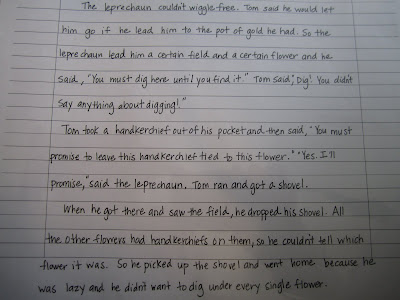 The leprechaun couldn't wiggle free. Tom said he would let
him go if he lead him to the pot of gold he had. So the
leprechaun lead him a certain field and a certain flower and he
said, "You must dig here until you find it." Tom said, "Dig! You didn't
say anything about digging!"
Tom took a handkerchief out of his pocket and then said, "You must
promise to leave this handkerchief tied to this flower." "Yes. I'll
promise," said the leprechaun. Tom ran and got a shovel.
When he got there and saw the field, he dropped his shovel. All
the other flowers had handkerchiefs on them, so he couldn't tell which
flower it was. So he picked up the shovel and went home because he
was lazy and he didn't want to dig under every single flower.